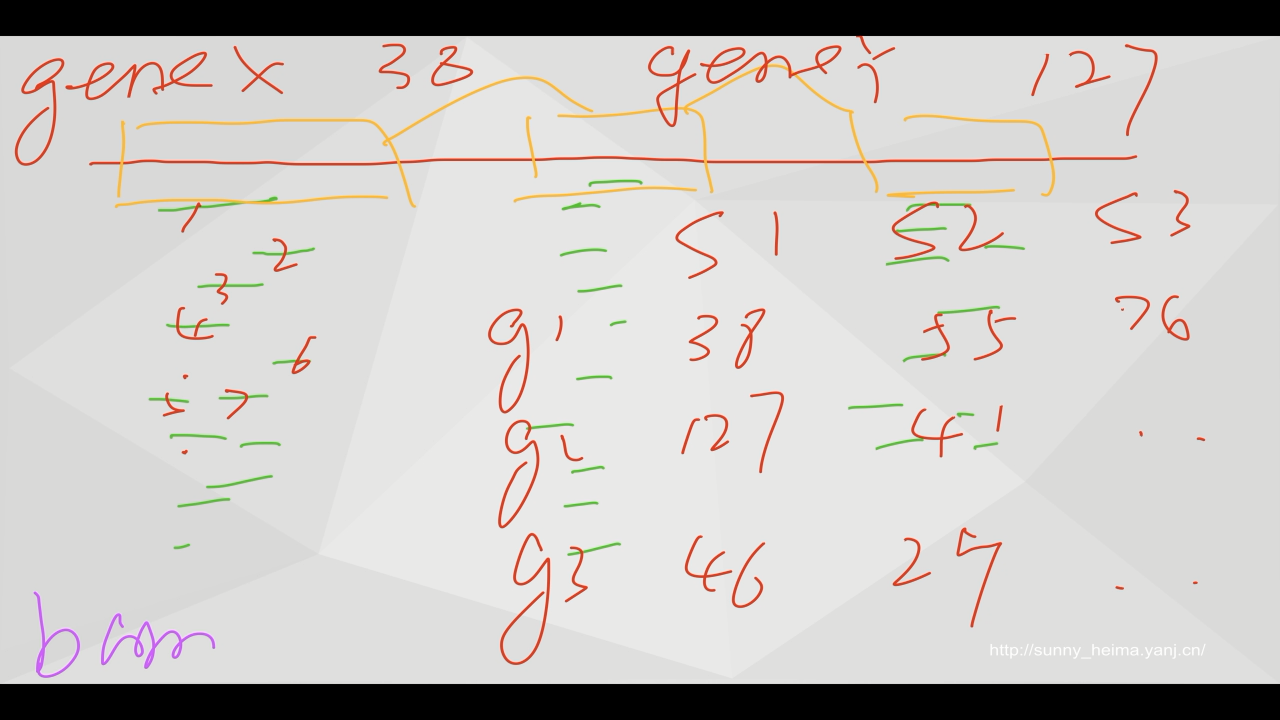 gene x 38 gene y 127
1
2
3
4
6
7
s1 s2 s3
g1 38 55 76
g2 127 41 . .
g3 46 27 . .
bam
http://sunny_heima.yanj.cn/